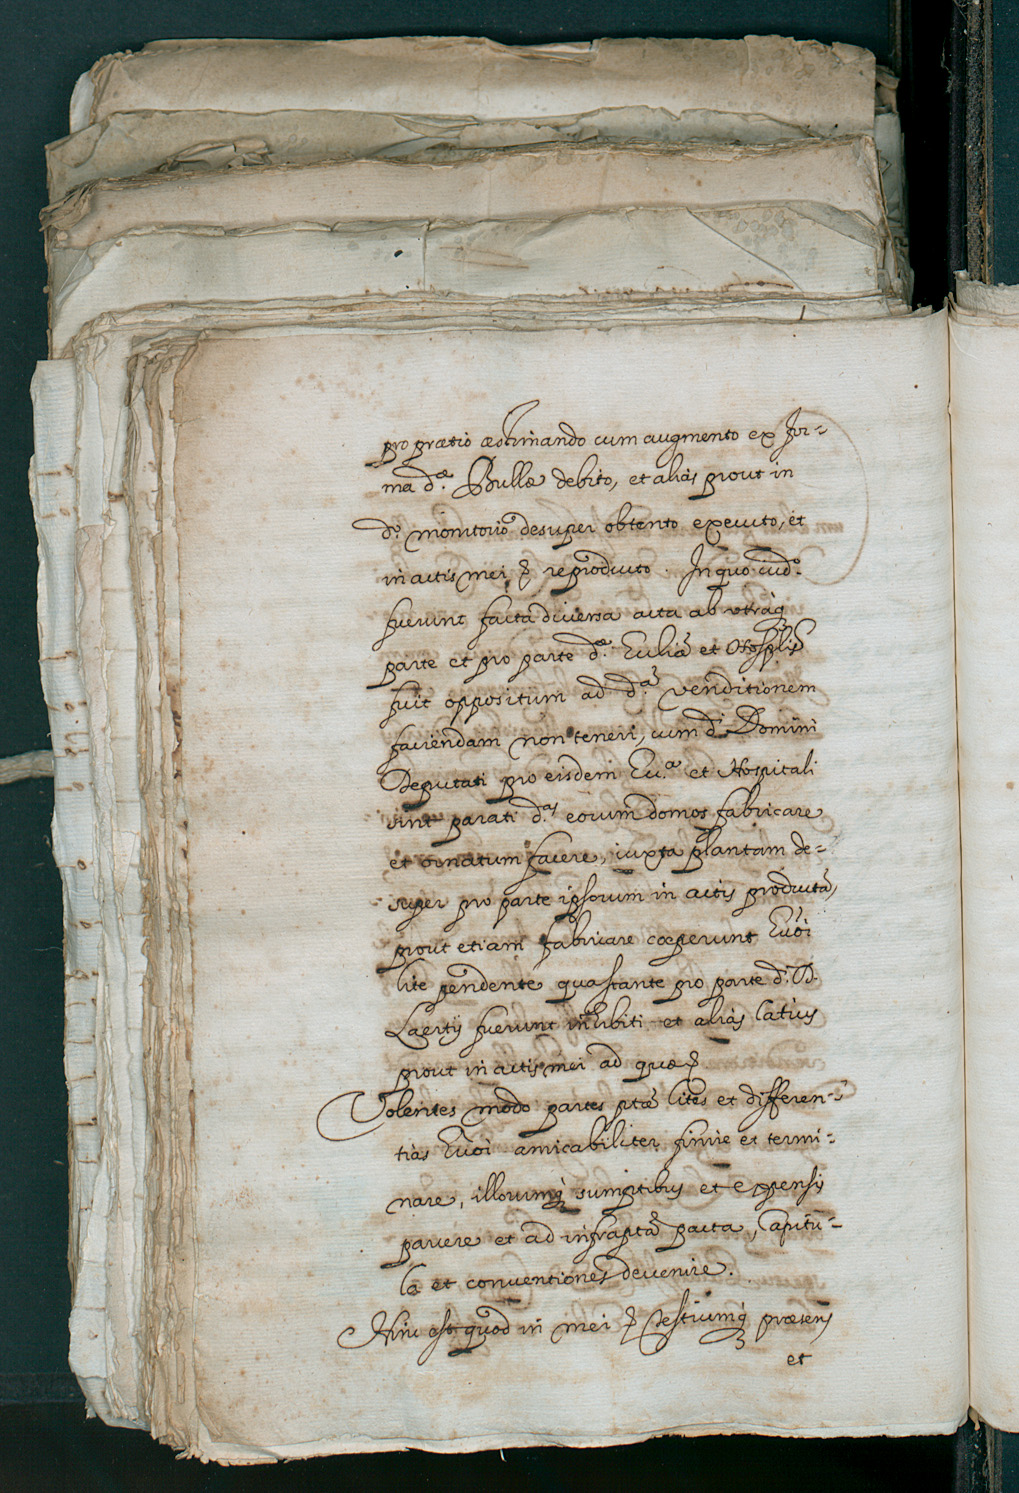 pro prætio æstimando cum augmento ex for-
ma d.æ Bullæ debito, et aliàs prout in
d.o monitorio desuper obtento executo, et
in actis mei reproducto. In quo iud.o
fuerunt facta diuersa acta ab utràq
parte et pro parte d.æ Eccliæ et Hosplis
fuit oppositum ad d.ã venditionem
faciendam non teneri, cum d.i Domini
Deputati pro eisdem Ecc.a et Hospitali
sint parati d.as eorum domos fabricare
et ornatum facere, iuxta plantam de-
super pro parte ipsorum in actis productã,
prout etiam fabricare cœperunt
lite pendente quastante pro parte d.i D.
Laertij fuerunt inhibiti et aliàs latius
prout in actis mei ad quæ
Volentes modo partes ptæ lites et differen-
tias amicabiliter finire et termi-
nare, illorumq sumptibus et expensis
parcere et ad infraptã pacta, Capitu-
la et conuentiones deuenire.
Hinc est quod in mei testiumq præsens
et